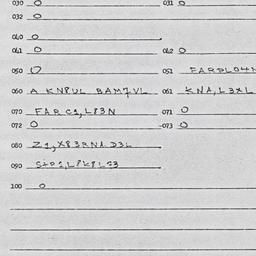 030 O 031 O
032 O
040 O
041 O 042 O
050 O 051
060 A KNPUL BAM7VL 061 KNA, L3XL
070 FARC1, L83N 071 O
072 O 073 O
080 Z1, X83RNA D3L
090
100 O